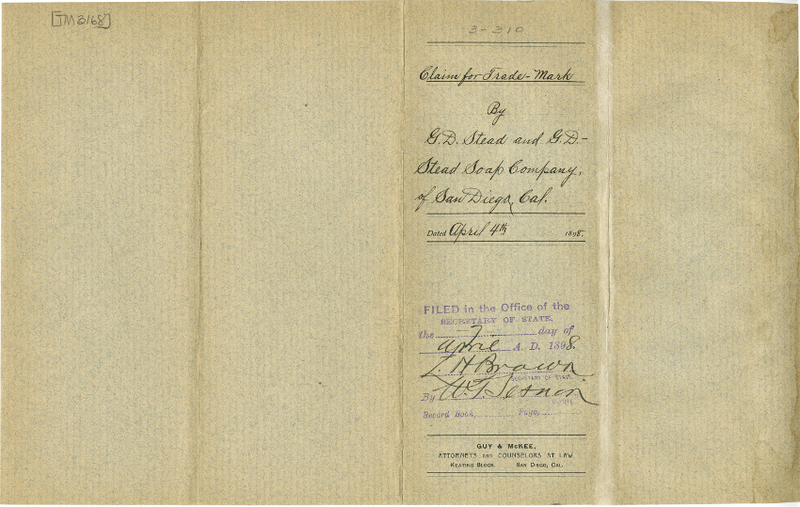 [TM3168]
3-310
Claim for Trade-Mark
By
G.D. Stead and G.D.-
Stead Soap Company,
of San Diego, Cal.
Dated April 4th 1898.
FILED in the Office of the
SECRETARY OF STATE,
the 7 day of
April A. D. 1898.
L. H. Brown
SECRETARY OF STATE
By W. T.
Record Book, Page,
GUY & McKEE,
ATTORNEYS AND COUNSELORS AT LAW
KEATING BLOCK. SAN DIEGO, CAL.